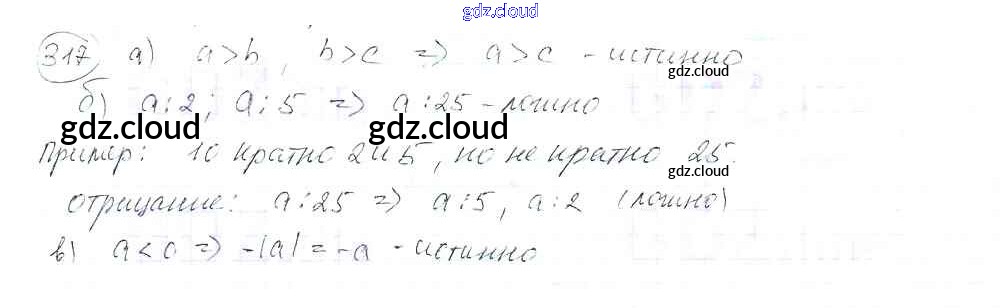 gdz.cloud
317 а) a>b, b>c => a>c - истинно
gdz.cloud
б) a⋮2; a⋮5 => a⋮25 - ложно
gdz.cloud gdz.cloud
Пример: 10 кратно 2 и 5, но не кратно 25.
gdz.cloud
отрицание: a⋮25 => a⋮5, a⋮2 (ложно)
в) a<0 => -|a| = -a - истинно